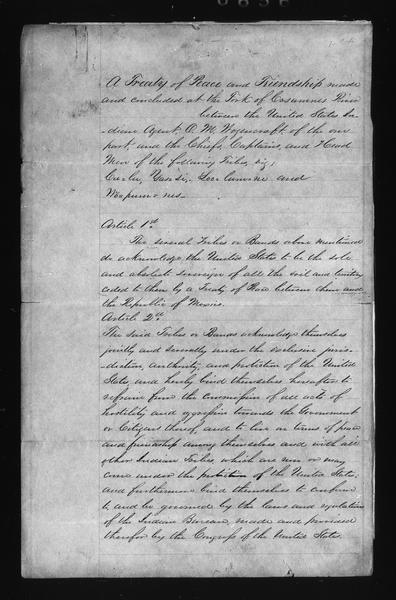 A Treaty of Peace and Friendship made
and concluded at the Fork of Cosumnes River
between the United States In-
-dian Agent, O. M. Wozencraft of the one
part and the Chiefs, Captains, and Head
Men of the following Tribes, viz;
Cu-lu, Yas-si, Loc-lum-ne and
Wo-pum-nes-
Article 1st
The several Tribes or Bands above mentioned
do acknowledge the United States to be the sole
and absolute sovereign of all the soil and territory
ceded to them by a Treaty of Peace between them and
the Republic of Mexico.
Article 2d
The said Tribes or Bands acknowledge themselves
jointly and severally under the exclusive juris-
-diction, authority, and protection of the United
States, and hereby bind themselves hereafter to
refrain from the commission of all acts of
hostility and aggression towards the Government
or Citizens thereof, and to live on terms of peace
and friendship among themselves and with all
other Indian Tribes, which are now or may
come under the protection of the United States;
and furthermore bind themselves to conform
to, and be governed by the laws and regulations
of the Indian Bureau, made and provided
therefor by the Congress of the United States.